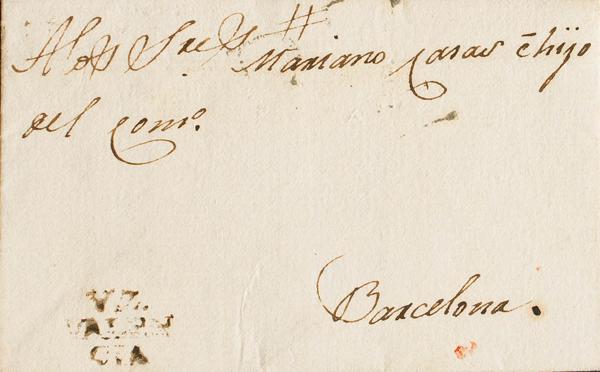 A los Sres Mariano Casas é hijo
del Como.
Barcelona.
VALEN
CIA